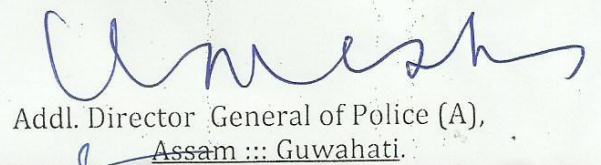 Addl. Director General of Police (A),
Assam ::: Guwahati.